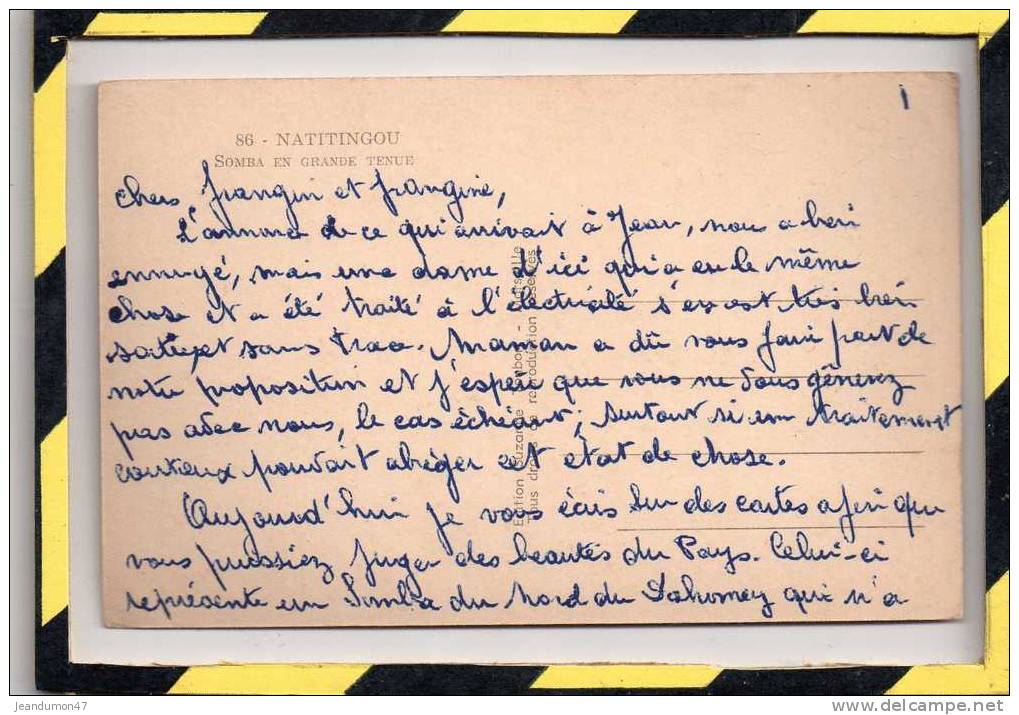 1
86 - NATITINGOU
SOMBA EN GRANDE TENUE
Chers frangin et frangine,
L'annonce de ce qui arrivait à Jean, nous a bien
ennuyé, mais une dame d'ici qui a eu le même
chose et a été traité à l'électricité s'en est très bien
sortie et sans trace. Maman a dû vous faire part de
notre proposition et j'espère que vous ne vous gênerez
pas avec nous, le cas échéant, surtout si un traitement
coûteux pouvait abréger cet état de chose.
Aujourd'hui je vous écris sur des cartes afin que
vous puissiez juger des beautés du Pays. Celui-ci
représente un Somba du Nord du Dahomey qui n'a
Edition Suzanne
Tous droits de reproduction réservés
jeandumon47
www.delcampe.net